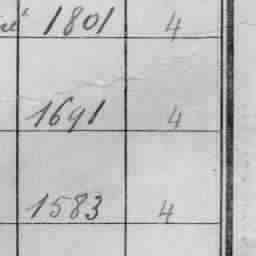 1801 4
1691 4
1583 4